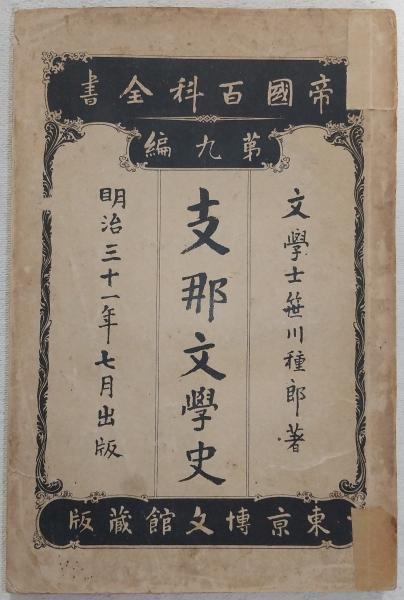 帝國百科全書
第九編
文學士笹川種郎著
支那文學史
明治三十一年七月出版
東京博文館藏版